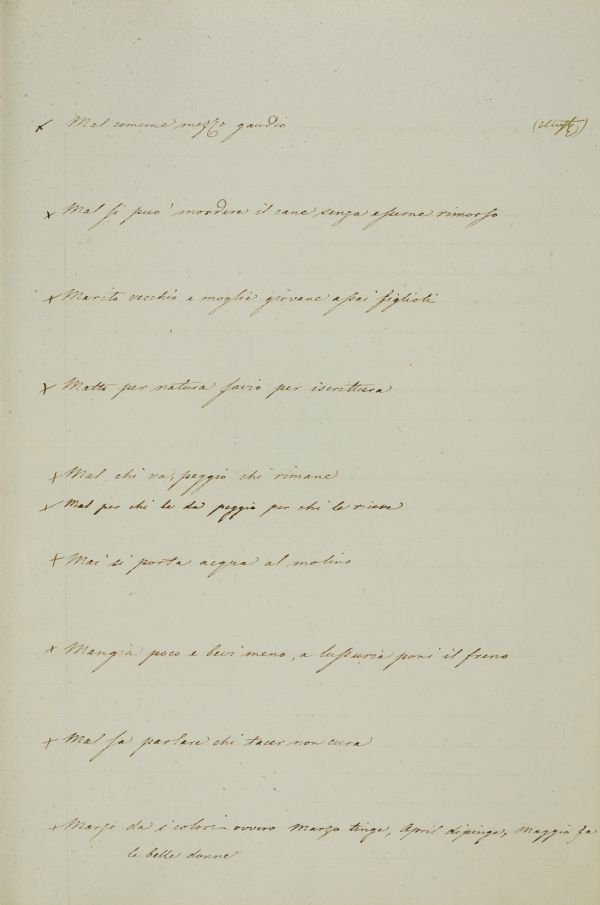 x Mal comune mezzo gaudio (illust)
x Mal si puo' mordere il cane senza esserne rimorso
x Marito vecchio e moglie giovane assai figlioli
x Matto per natura savio per iscrittura
x Mal chi va, peggio chi rimane
x Mal per chi le dà peggio per chi le riceve
x Mai si porta acqua al molino
x Mangia poco e bevi meno, a lussuria poni il freno
x Mal sa parlare chi tacer non cura
x Marzo da i colori ovvero Marzo tinge, April dipinge, Maggio fa
le belle donne